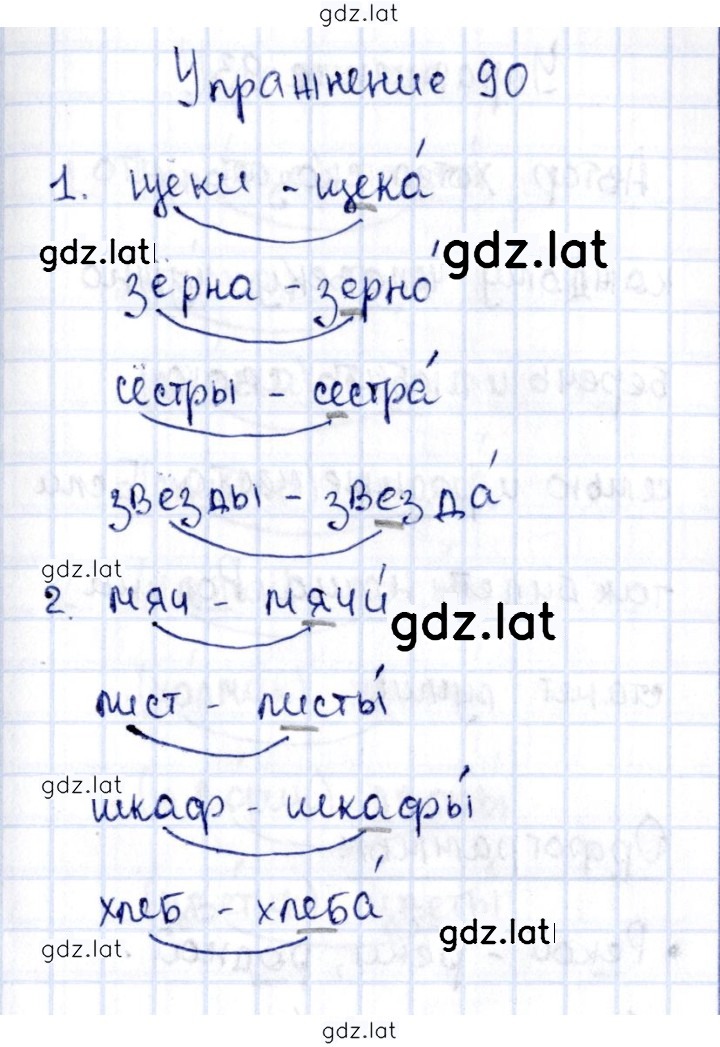 gdz.lat
Упражнение 90
1. щёки - щека́
gdz.lat gdz.lat
зёрна - зерно́
сёстры - сестра́
звёзды - звезда́
gdz.lat
2. мяч - мячи́
gdz.lat
лист - листы́
gdz.lat
шкаф - шкафы́
хлеб - хлеба́
gdz.lat gdz.lat
gdz.lat